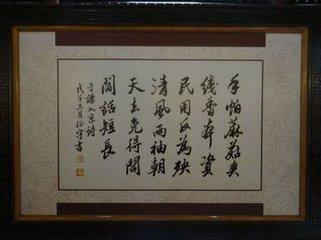 手帕蔴菇與
线香本資
民用反為殃
清風兩袖朝
天去免得閭
閻話短長
于謙入京詩
戊子三月
書